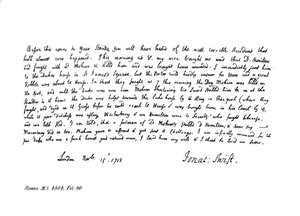 Before this comes to your Hands, you will have heard of the most terrible Accident that
hath almost ever happened. This morning at 8, my man brought me word that D. Hamilton
had fought with Ld Mohun & killd him and was brought home wounded. I immediatly sent him
to the Dukes house in S. James's Square; but the Porter could hardly answer for tears and a great
Rabble was about the House. In short they fought at 7 this morning the Dog Mohun was killed on
the Spot, and
the Duke was
him
Hamilton in the
Shoulder
the Heart
helpt towards the
House by the Ring in
Park (where they
fought) and dyed on the Grass before he could reach the House, & was brought home in his Coach by 8,
while the poor Dutchess was asleep. Macartney and one Hamilton were the Seconds who fought likewise,
and are both fled. I am told, that a footman of Ld Mohun's stabbd D. Hamilton; & some say
Macartney did so too. Mohun gave the affront & yet sent the Challenge. I am infinitly concerned for the
poor Duke who was a frank honest good natured man, I loved him very well & I think he loved me better.
London Novr 15th 1712
Jonat: Swift.
Sloane MS. 4804, Fol. 90